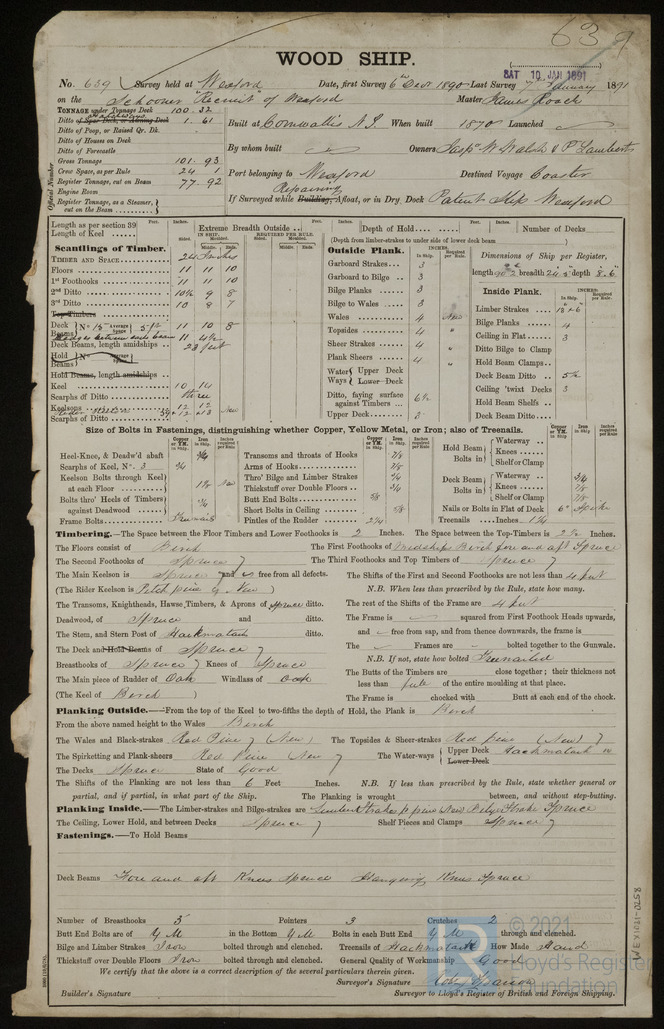 WOOD SHIP.
SAT 10 JAN 1891
No. 639 Survey held at Wexford Date, first Survey 6th Decr 1890 Last Survey 7 January 1891
on the Schooner "Recruit of Wexford Master James Roach
TONNAGE under Tonnage Deck 100.32
Ditto of Spar Deck, or Awning Deck 1.61
Ditto of Poop, or Raised Qr. Dk.
Ditto of Houses on Deck
Ditto of Forecastle
Gross Tonnage 101.93
Crew Space, as per Rule 24.1
Register Tonnage, cut on Beam 77.92
Engine Room
Register Tonnage, as a Steamer, cut on the Beam
Official Number
Built at Cornwallis N.S. When built 1870 Launched
By whom built Owners Jasper W Walsh & P Lambert
Port belonging to Wexford Destined Voyage Coaster
Repairing
If Surveyed while Building, Afloat, or in Dry Dock Patent Slip Wexford
Length as per section 39
Length of Keel
Extreme Breadth Outside
Depth of Hold
Number of Decks
(Depth from limber-strakes to under side of lower deck beam)
Scantlings of Timber.
TIMBER AND SPACE 24 Inches
Floors 11 11 10
1st Foothooks 11 11 10
2nd Ditto 10½ 9 8
3rd Ditto 10 8 7
Top Timbers
Deck Beams N° 15 average space 5 ft 11 10 8
Deck Beams, length amidships 23 feet
Hold Beams
Hold Beams, length amidships
Keel 10 14
Scarphs of Ditto three
Keelsons 12 12
Scarphs of Ditto
Outside Plank.
Garboard Strakes 3
Garboard to Bilge 3
Bilge Planks 3
Bilge to Wales 3
Wales 4 New
Topsides 4 "
Sheer Strakes 4 "
Plank Sheers 4 "
Water Ways Upper Deck
Lower Deck
Ditto, faying surface against Timbers 6½
Upper Deck 3
Dimensions of Ship per Register,
length 90.2 breadth 24.5 depth 8.6
Inside Plank.
Limber Strakes
Bilge Planks 4
Ceiling in Flat 3
Ditto Bilge to Clamp
Hold Beam Clamps
Deck Beam Ditto 5½
Ceiling 'twixt Decks 3
Hold Beam Shelfs
Deck Beam Ditto
Size of Bolts in Fastenings, distinguishing whether Copper, Yellow Metal, or Iron; also of Treenails.
Heel-Knee, & Deadw'd abaft ¾
Scarphs of Keel, N°. 3 ¾
Keelson Bolts through Keel at each Floor 1⅛ New
Bolts thro' Heels of Timbers against Deadwood ¾
Frame Bolts Treenails
Transoms and throats of Hooks 7/8
Arms of Hooks 7/8
Thro' Bilge and Limber Strakes ¾
Thickstuff over Double Floors ¾
Butt End Bolts 5/8
Short Bolts in Ceiling 5/8
Pintles of the Rudder 2¼
Hold Beam Bolts in Waterway
Knees
Shelf or Clamp
Deck Beam Bolts in Waterway ¾
Knees 7/8
Shelf or Clamp 7/8
Nails or Bolts in Flat of Deck 6" Spike
Treenails Inches 1¼
Timbering.—The Space between the Floor Timbers and Lower Foothooks is 2 Inches. The Space between the Top-Timbers is 2½ Inches.
The Floors consist of Birch The First Foothooks of Midships Birch fore and aft Spruce
The Second Foothooks of Spruce The Third Foothooks and Top Timbers of Spruce
The Main Keelson is Spruce and free from all defects. The Shifts of the First and Second Foothooks are not less than 4 feet
(The Rider Keelson is Pitch pine New) N.B. When less than prescribed by the Rule, state how many.
The Transoms, Knightheads, Hawse Timbers, & Aprons of Spruce ditto. The rest of the Shifts of the Frame are 4 feet
Deadwood, of Spruce and ditto. The Frame is squared from First Foothook Heads upwards,
The Stem, and Stern Post of Hackmatack ditto. and free from sap, and from thence downwards, the frame is
The Deck and Hold Beams of Spruce The Frames are bolted together to the Gunwale.
Breasthooks of Spruce Knees of Spruce N.B. If not, state how bolted Treenailed
The Main piece of Rudder of Oak Windlass of Oak The Butts of the Timbers are close together; their thickness not less than of the entire moulding at that place.
(The Keel of Birch) The Frame is chocked with Butt at each end of the chock.
Planking Outside.—From the top of the Keel to two-fifths the depth of Hold, the Plank is Birch
From the above named height to the Wales Birch
The Wales and Black-strakes Red Pine (New) The Topsides & Sheer-strakes Red pine (New)
The Spirketting and Plank-sheers Red Pine (New) The Water-ways Upper Deck Hackmatack
Lower Deck
The Decks Spruce State of Good
The Shifts of the Planking are not less than 6 Feet Inches. N.B. If less than prescribed by the Rule, state whether general or
partial, and if partial, in what part of the Ship. The Planking is wrought between, and without step-butting.
Planking Inside.—The Limber-strakes and Bilge-strakes are Limber Strake p pine New Bilge Strake Spruce
The Ceiling, Lower Hold, and between Decks Spruce Shelf Pieces and Clamps Spruce
Fastenings.—To Hold Beams
Deck Beams Fore and aft Knees Spruce Hanging Knees Spruce
Number of Breasthooks 5 Pointers 3 Crutches 2
Butt End Bolts are of Y M in the Bottom Y M Bolts in each Butt End Y M through and clenched.
Bilge and Limber Strakes Iron bolted through and clenched. Treenails of Hackmatack How Made Hand
Thickstuff over Double Floors Iron bolted through and clenched. General Quality of Workmanship Good
We certify that the above is a correct description of the several particulars therein given.
Surveyor's Signature
Builder's Signature Surveyor to Lloyd's Register of British and Foreign Shipping.
© 2021
Lloyd's Register
Foundation
WEX1021-0258